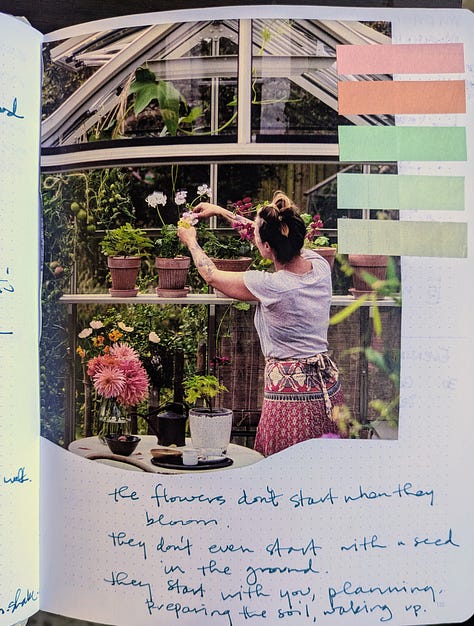 the flowers don't start when they
bloom.
They don't even start with a seed
in the ground.
They start with you, planning,
Preparing the soil, waking up.